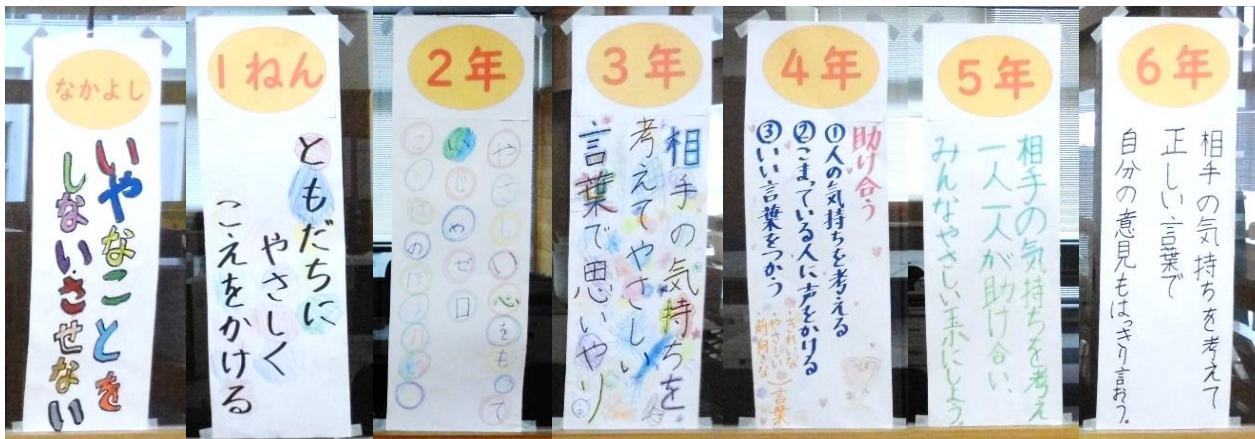 なかよし
いやなことを
しない、させない
1ねん
ともだちに
やさしく
こえをかける
2年
やさしい心をもって
いじめゼロ
3年
相手の気持ちを
考えてやさしい
言葉で思いやり
4年
助け合う
①人の気持ちを考える
②こまっている人に声をかける
③いい言葉をつかう
・きれいな
・やさしい
・前向きな
言葉
5年
相手の気持ちを考え
一人一人が助け合い、
みんなやさしい玉小にしよう
6年
相手の気持ちを考えて
正しい言葉で
自分の意見もはっきり言おう。